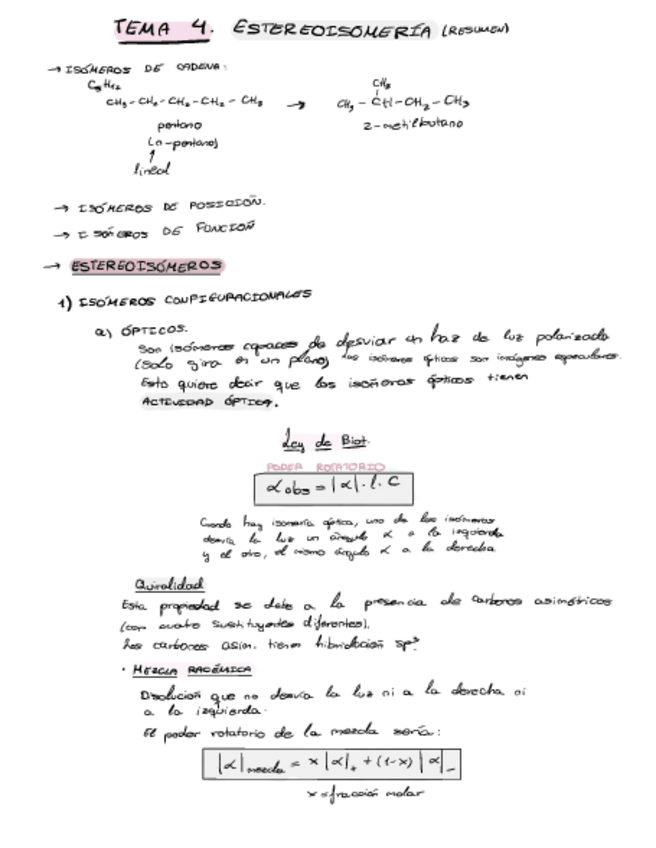 TEMA 4. ESTEREOISOMERÍA (RESUMEN)
→ ISÓMEROS DE CADENA:
C₅H₁₂
CH₃
CH₃ - CH₂ - CH₂ - CH₂ - CH₃ → CH₃ - CH - CH₂ - CH₃
pentano 2-metilbutano
(n-pentano)
↑
lineal
→ ISÓMEROS DE POSICIÓN.
→ ISÓMEROS DE FUNCIÓN
→ ESTEREOISÓMEROS
1) ISÓMEROS CONFIGURACIONALES
a) ÓPTICOS.
Son isómeros capaces de desviar un haz de luz polarizada
(solo gira en un plano) los isómeros ópticos son imágenes especulares.
Esto quiere decir que los isómeros ópticos tienen
ACTIVIDAD ÓPTICA.
Ley de Biot.
PODER ROTATORIO
α obs = |α| · l · C
Cuando hay isomería óptica, uno de los isómeros
desvía la luz un ángulo α a la izquierda
y el otro, el mismo ángulo α a la derecha
Quiralidad
Esta propiedad se debe a la presencia de carbonos asimétricos
(con cuatro sustituyentes diferentes).
Los carbones asim. tienen hibridación sp³
· MEZCLA RACÉMICA
Disolución que no desvía la luz ni a la derecha ni
a la izquierda.
El poder rotatorio de la mezcla sería:
|α| mezcla = x |α|₊ + (1-x) |α|₋
x = fracción molar